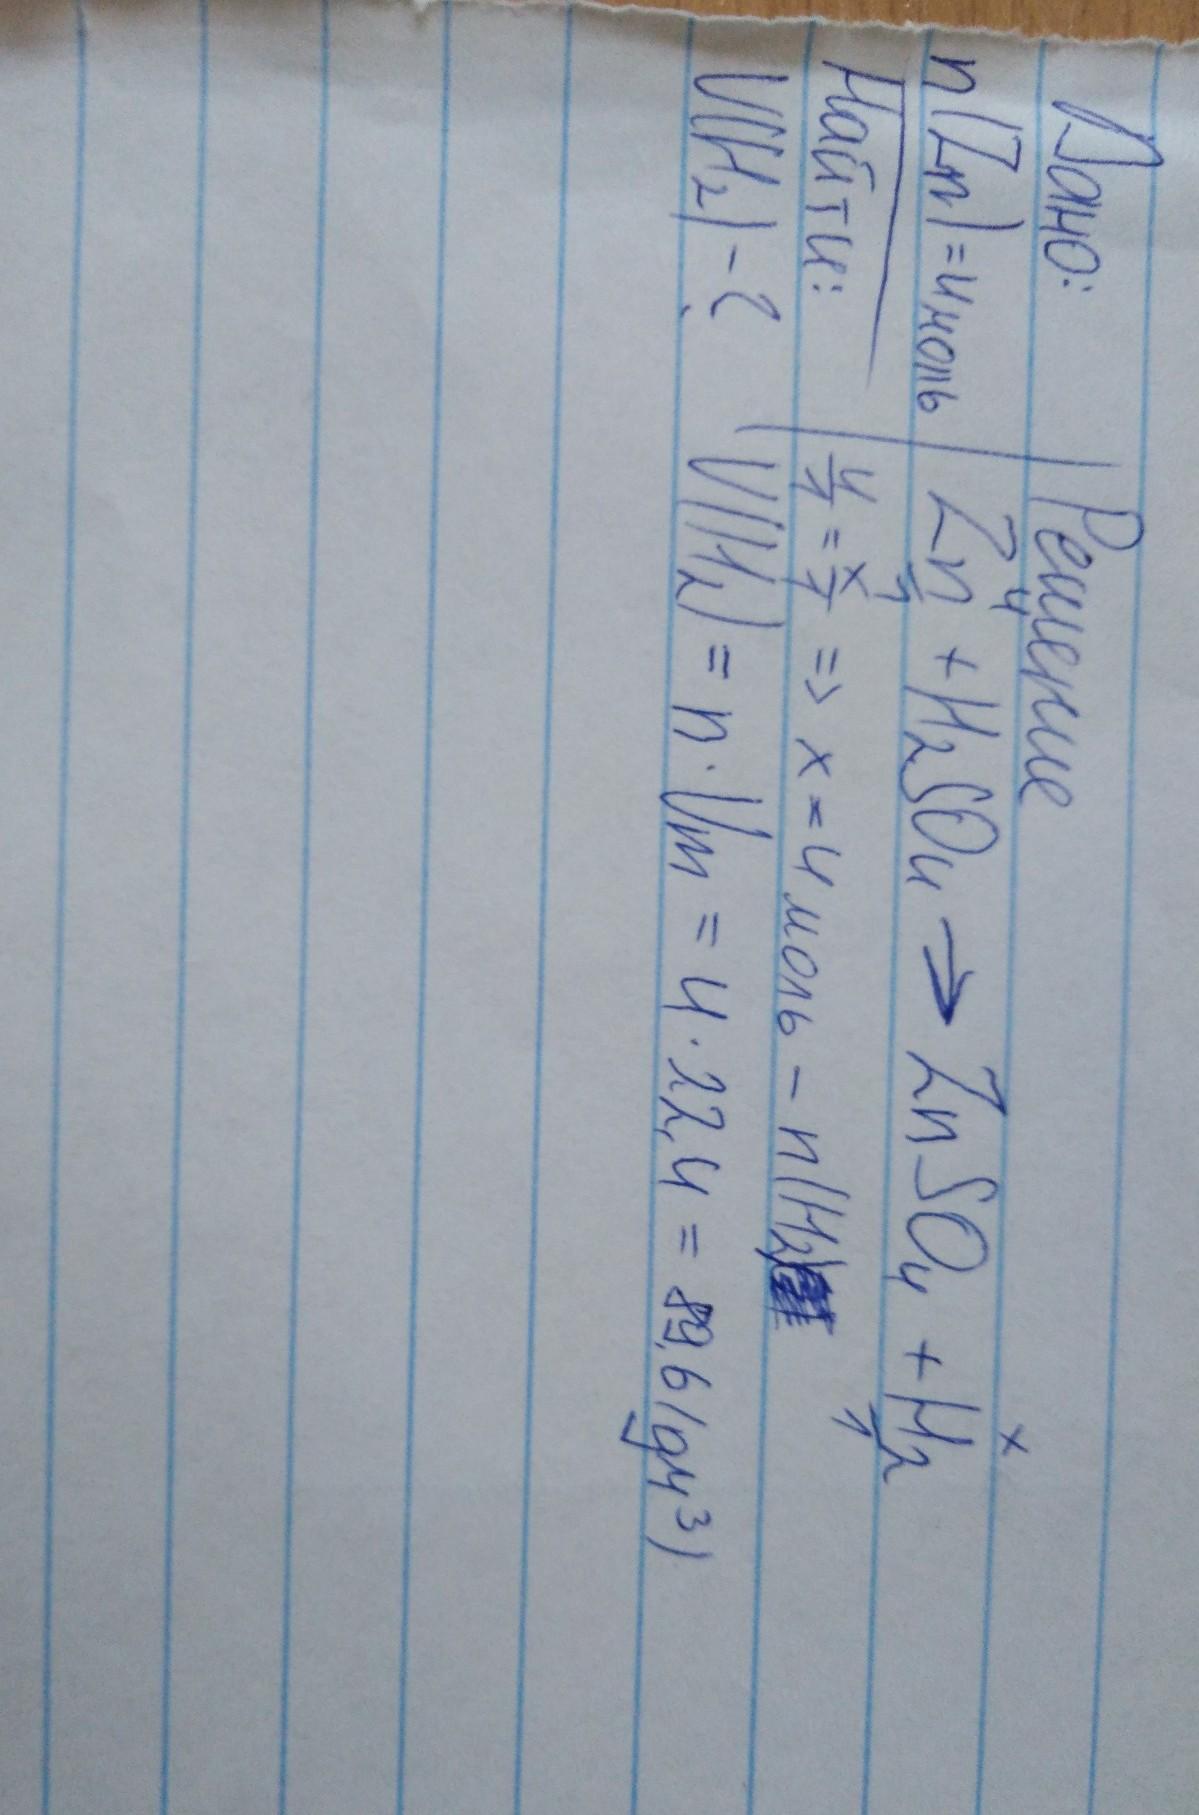 Дано:
n(Zn)=4моль
Найти:
V(H₂)-?
Решение
4 x
Zn + H₂SO₄ → ZnSO₄ + H₂
1 1
4/1 = x/1 => x = 4 моль - n(H₂)
V(H₂) = n · Vm = 4 · 22,4 = 89,6 (дм³)